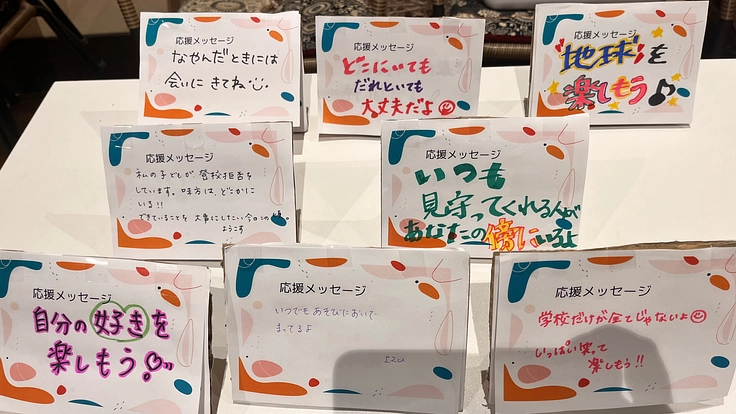 応援メッセージ
なやんだときには
会いに きてね
応援メッセージ
どこにいても
だれといても
大丈夫だよ
応援メッセージ
地球を
楽しもう♪
応援メッセージ
私の子どもが、登校拒否を
しています。味方は、どこかに
いる!!
できていることを 大事にしたい今日この頃。
ようこす
応援メッセージ
いつも
見守ってくれる人が
あなたの傍にいるよ
応援メッセージ
自分の好きを
楽しもう!
応援メッセージ
いつでもあそびにおいで
まってるよ
IZU
応援メッセージ
学校だけが全てじゃないよ
いっぱい笑って
楽しもう!!